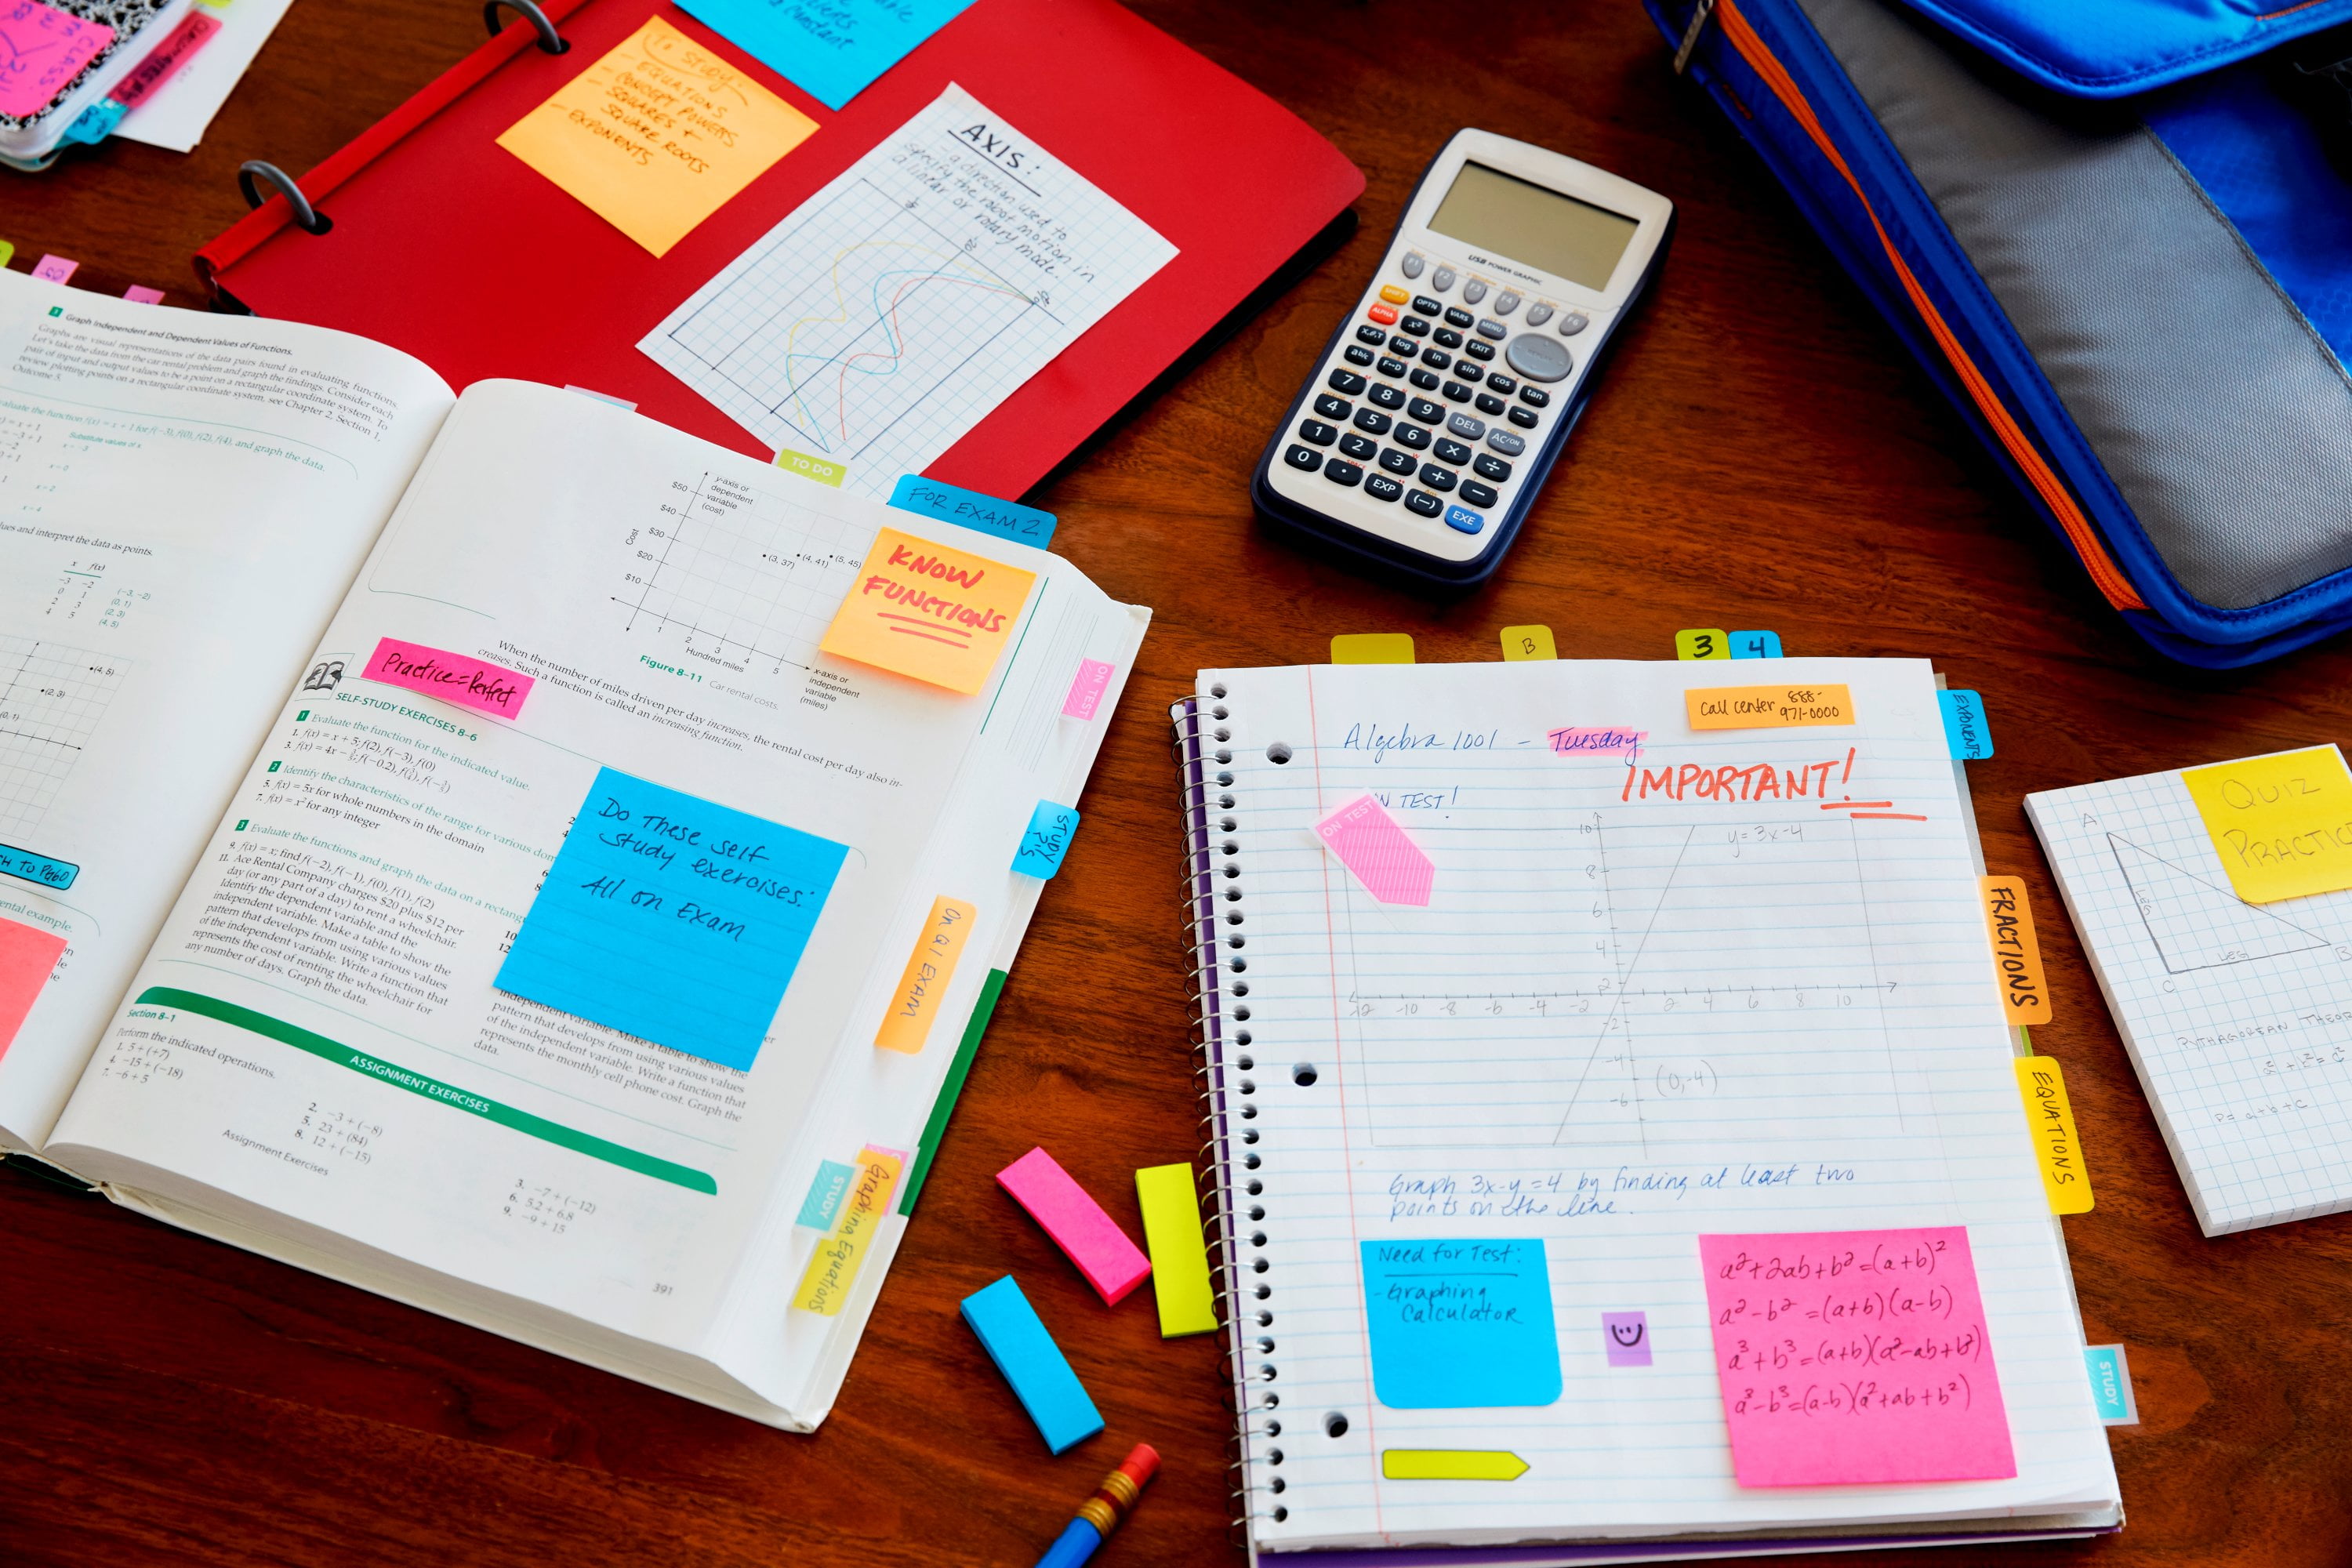 TO STUDY:
- EQUATIONS
- CONCEPT POWERS
SQUARES +
SQUARE ROOTS
- EXPONENTS
constant
AXIS:
- a direction used to
specify the robot motion in
a linear or rotary mode.
TO DO
FOR EXAM 2
KNOW
FUNCTIONS
1 Graph Independent and Dependent Values of Functions.
Graphs are visual representations of the data pairs found in evaluating functions.
Let's take the data from the car rental problem and graph the findings. Consider each
pair of input and output values to be a point on a rectangular coordinate system. To
review plotting points on a rectangular coordinate system, see Chapter 2, Section 1,
Outcome 3.
evaluate the function f(x) = x + 1 for f(−3), f(0), f(2), f(4), and graph the data.
Substitute values of x
x = −3
x = 0
x = 2
x = 4
values and interpret the data as points.
x f(x)
−3 −2 (−3, −2)
0 1 (0, 1)
2 3 (2, 3)
4 5 (4, 5)
(4, 5)
(2, 3)
(0, 1)
TO PG60
rental example.
y-axis or
dependent
variable
(cost)
$50
$40
$30
$20
$10
Cost
(3, 37) (4, 41) (5, 45)
1 2 3 4 5
Hundred miles
x-axis or
independent
variable
(miles)
Figure 8–11 Car rental costs.
When the number of miles driven per day increases, the rental cost per day also in-
creases. Such a function is called an increasing function.
Practice=Perfect
SELF-STUDY EXERCISES 8–6
1 Evaluate the function for the indicated value.
1. f(x) = x + 5; f(2), f(−3), f(0)
2 Identify the characteristics of the range for various dom
5. f(x) = 5x for whole numbers in the domain
7. f(x) = x² for any integer
3 Evaluate the functions and graph the data on a rectang
9. f(x) = x; find f(−2), f(−1), f(0), f(1), f(2)
11. Ace Rental Company charges $20 plus $12 per
day (or any part of a day) to rent a wheelchair.
Identify the dependent variable and the
independent variable. Make a table to show the
pattern that develops from using various values
of the independent variable. Write a function that
represents the cost of renting the wheelchair for
any number of days. Graph the data.
10
12
Do These self
study exercises:
All on Exam
independent variable. Make a table to show the
pattern that develops from using various values
of the independent variable. Write a function that
represents the monthly cell phone cost. Graph the
data.
ASSIGNMENT EXERCISES
Section 8–1
Perform the indicated operations.
1. 5 + (+7)
4. −15 + (−18)
7. −6 + 5
2. −3 + (−8)
5. 23 + (84)
8. 12 + (−15)
3. −7 + (−12)
6. 5.2 + 6.8
9. −9 + 15
Assignment Exercises
391
ON TEST
STUDY
On Q1 EXAM
STUDY
Graphing Equations
USB POWER GRAPHIC
F1 F2 F3 F4 F5 F6
SHIFT OPTN VARS MENU
ALPHA x² ^ EXIT
X,θ,T log ln sin cos tan
ab/c F↔D ( ) , →
7 8 9 DEL AC/ON
4 5 6 × ÷
1 2 3 + −
0 . EXP (−) EXE
B
3
4
call center 888-
971-0000
Algebra 1001 - Tuesday
IMPORTANT!
TEST!
ON TEST
y=3x-4
10
8
6
4
2
-12 -10 -8 -6 -4 -2 2 4 6 8 10
-2
-4
-6
(0,-4)
Graph 3x-y=4 by finding at least two
points on the line.
Need for Test:
- Graphing
Calculator
a²+2ab+b²=(a+b)²
a²-b²=(a+b)(a-b)
a³+b³=(a+b)(a²-ab+b²)
a³-b³=(a-b)(a²+ab+b²)
EXPONENTS
FRACTIONS
EQUATIONS
STUDY
QUIZ
PRACTIC
A
LEG
LEG
C
PYTHAGOREAN THEOR
a²+b²=c²
P=a+b+c